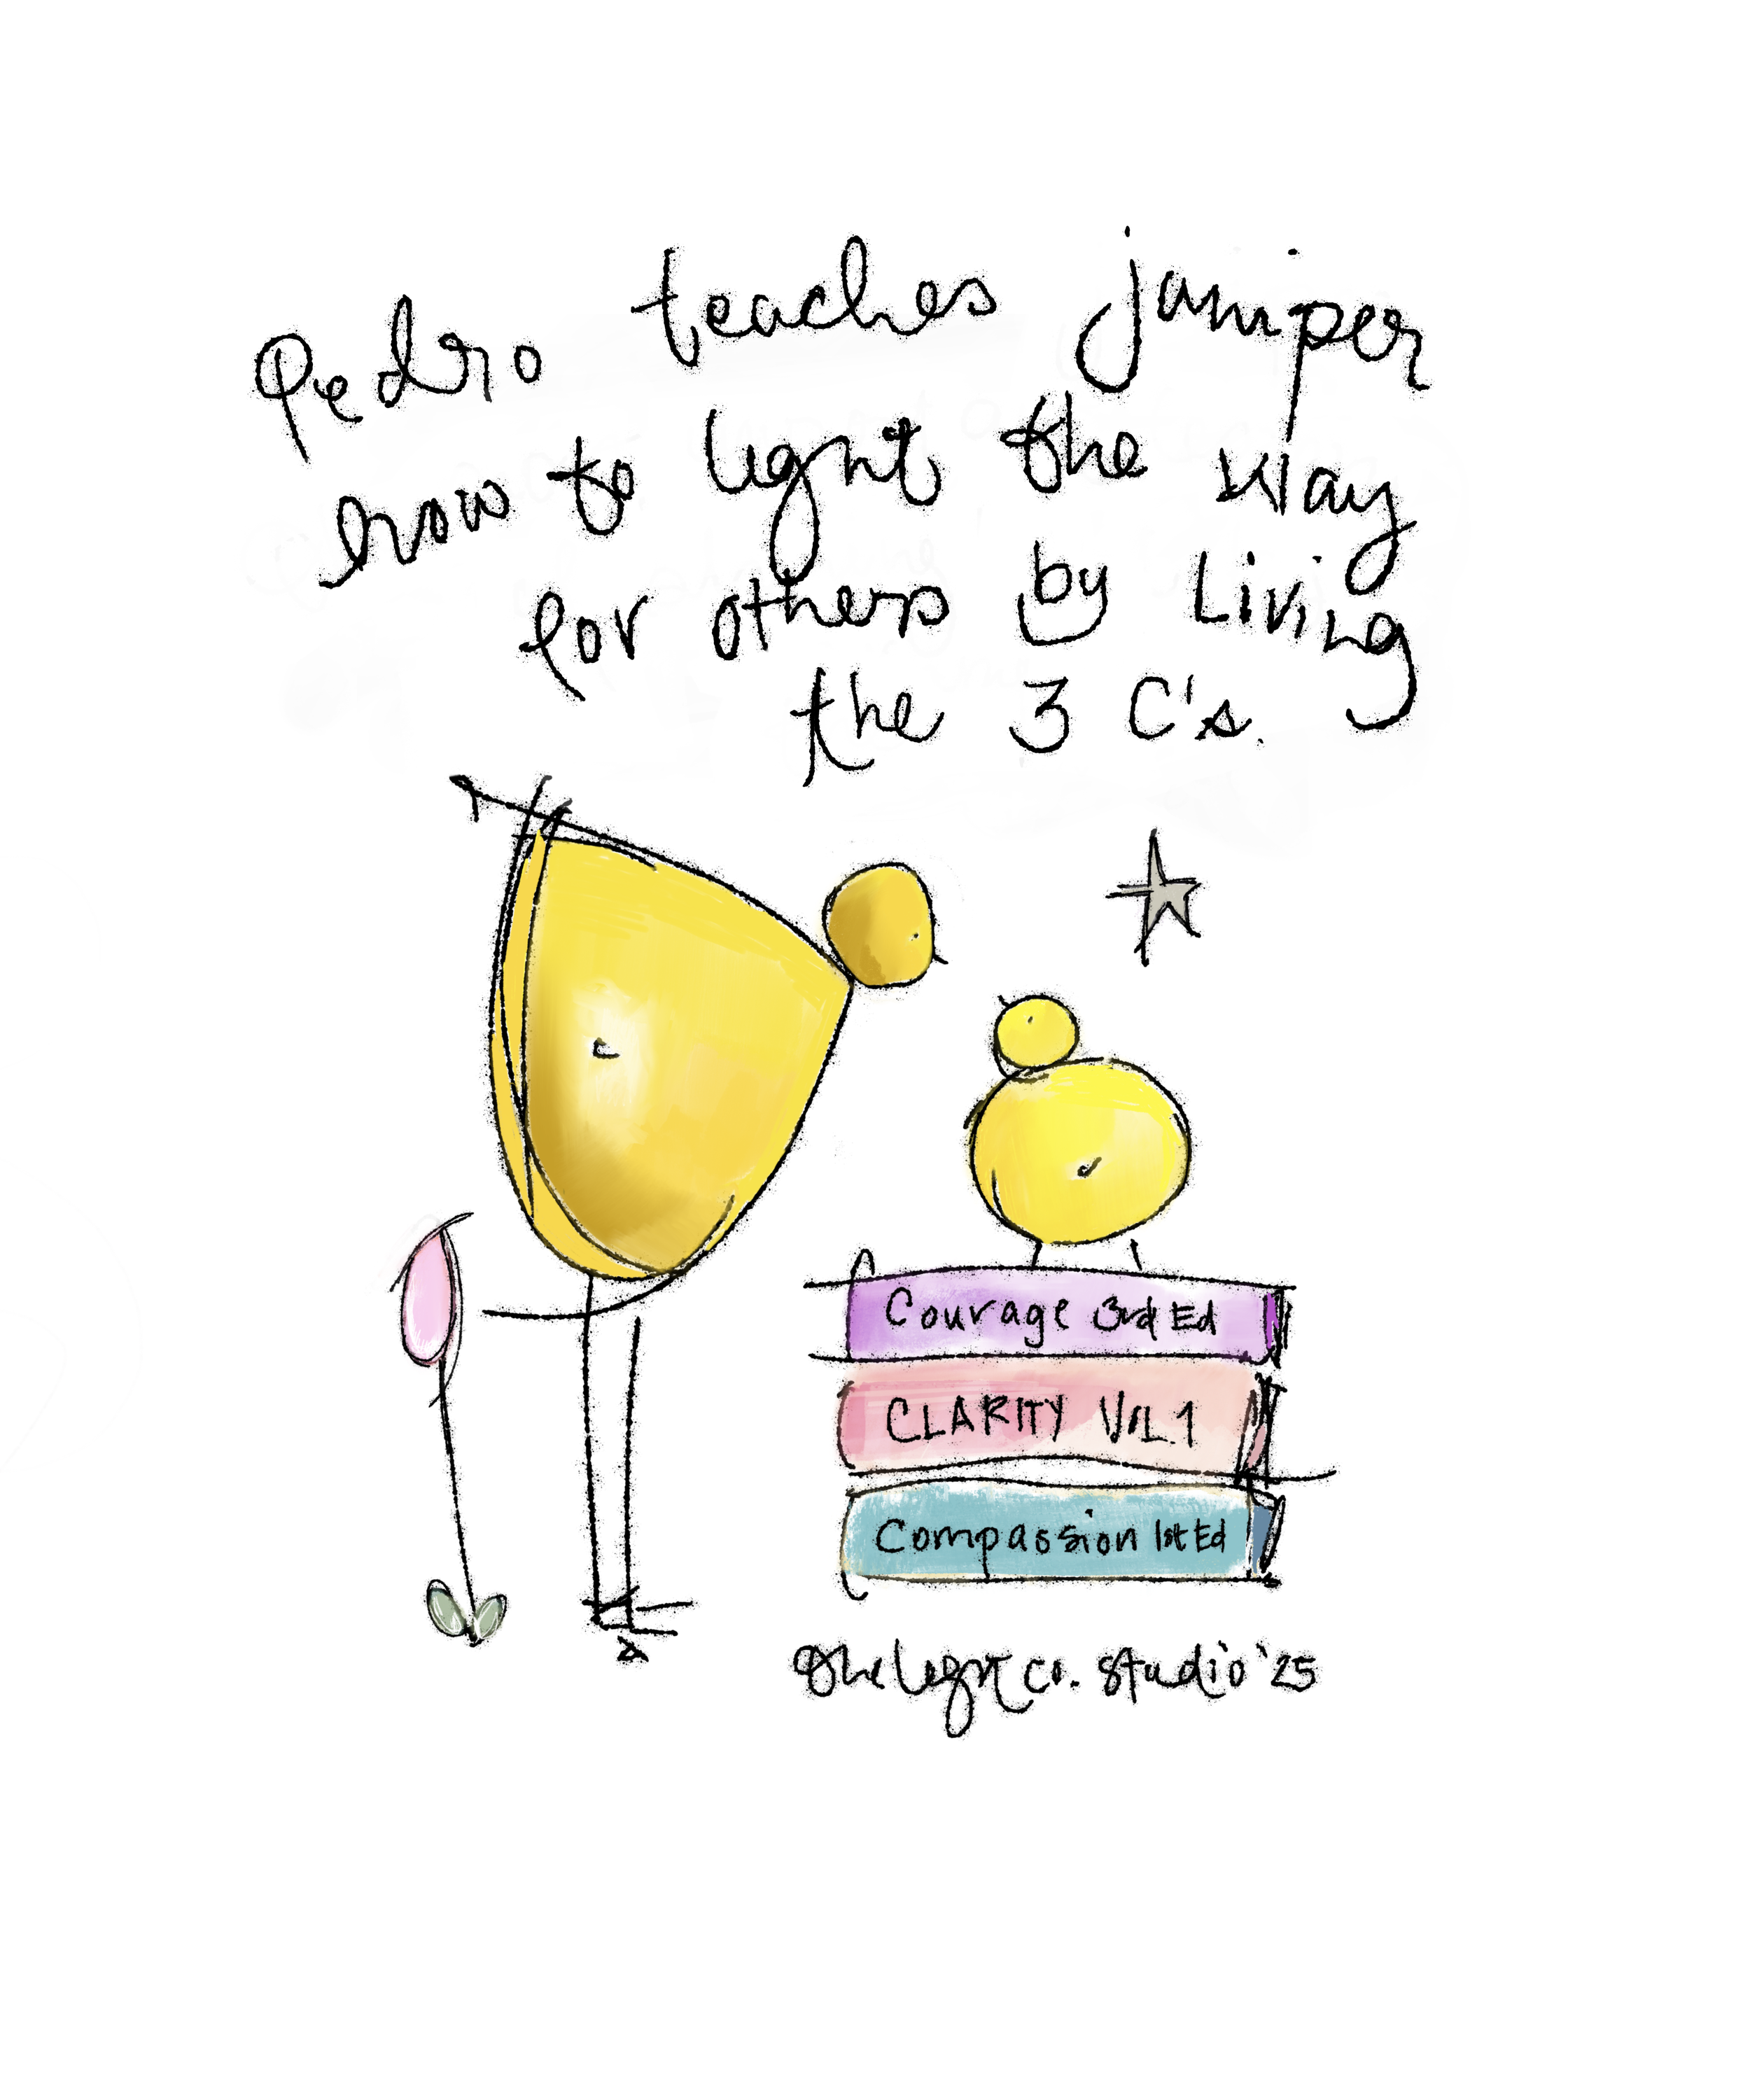 Pedro teaches juniper
how to light the way
for others by Living
the 3 C's.
Courage 3rd Ed
CLARITY VOL.1
Compassion 1st Ed
the light co. studio '25